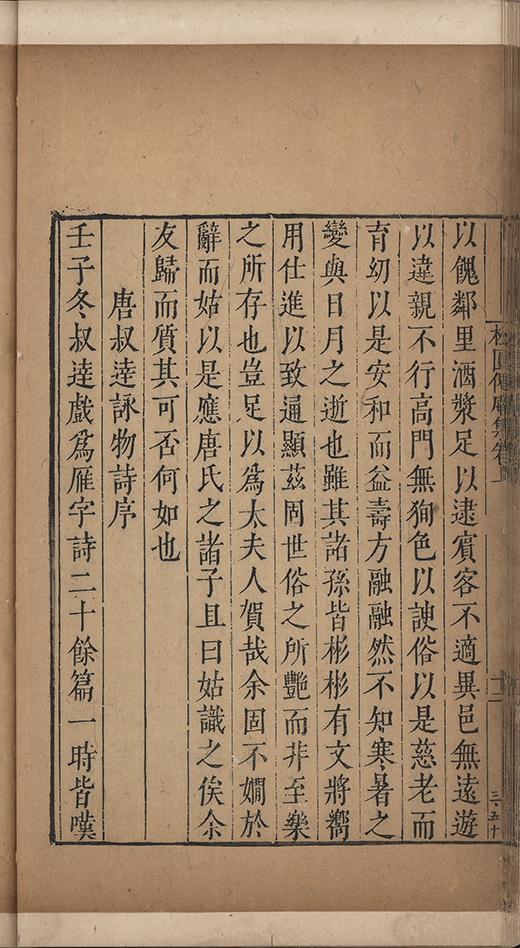 以餽鄰里酒漿足以逮賓客不適異邑無遠遊
以違親不行高門無狥色以諛俗以是慈老而
育幼以是安和而益壽方融融然不知寒暑之
變與日月之逝也雖其諸孫皆彬彬有文將嚮
用仕進以致通顯茲固世俗之所艷而非至樂
之所存也豈足以爲太夫人賀哉余固不嫺於
辭而姑以是應唐氏之諸子且曰姑識之俟余
友歸而質其可否何如也
唐叔逹詠物詩序
壬子冬叔逹戲爲雁字詩二十餘篇一時皆嘆